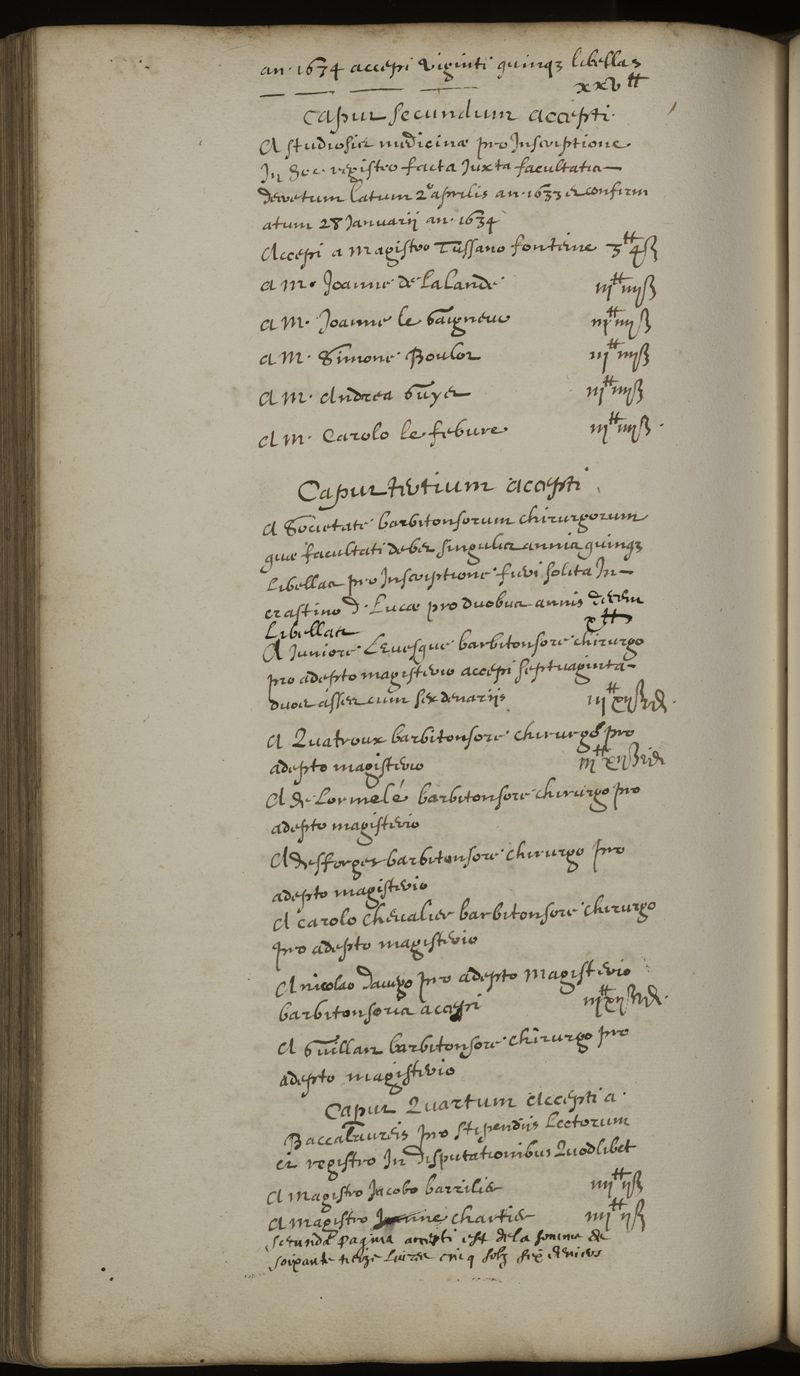 an. 1634 accepi viginti quinqz libellas
xxv ₶
Caput secundum accepti.
A studiosis medicinæ pro Inscriptione
In hoc registro facta Juxta facultatis
decretum latum 2ª aprilis an. 1633 et confirm
atum 28 Januarii an. 1634
Accepi a Magistro Tussano fonteine 3₶ 4ß
a M. Joanne de Lalande iij₶ iiijß
a M. Joanne le iij₶ iiijß
a M. Simone Boulot iij₶ iiijß
A M. Andrea Guyet iij₶ iiijß
A M. Carolo le febure iij₶ iiijß
Caput tertium accepti
A Societate barbitonsorum chirurgorum
quæ facultati debet singulis annis quinqz
Libellas pro Inscriptione fieri solita In
crastino d. Lucæ pro duobus annis decem
Libellas x₶
A Juniore Levesque barbitonsore chirurgo
pro adepto magisterio accepi septuaginta
duos asses cum sex denariis iij₶ xijß vi d.
A Quatroux barbitonsore chirurgo pro
adepto magisterio iij₶ xijß vi d
A de Lormelé barbitonsore chirurgo pro
adepto magisterio
A desforges barbitonsore chirurgo pro
adepto magisterio
A Carolo Chevalier barbitonsore chirurgo
pro adepto magisterio
A nicolao pro adepto Magisterio
barbitonsoris accepi iij₶ xijß vi d.
A barbitonsore chirurgo pro
adepto magisterio
Caput Quartum Accepti a
Baccalaureis pro stipendiis Lectorum
et registro In disputationibus Quodlibet
A Magistro Jacobo barrilier iiij₶ ijß
A Magistro Joanne chartier iiij₶ ijß
secunda pagina accepti est de la somme de
soixante treize livres cinq solz six deniers